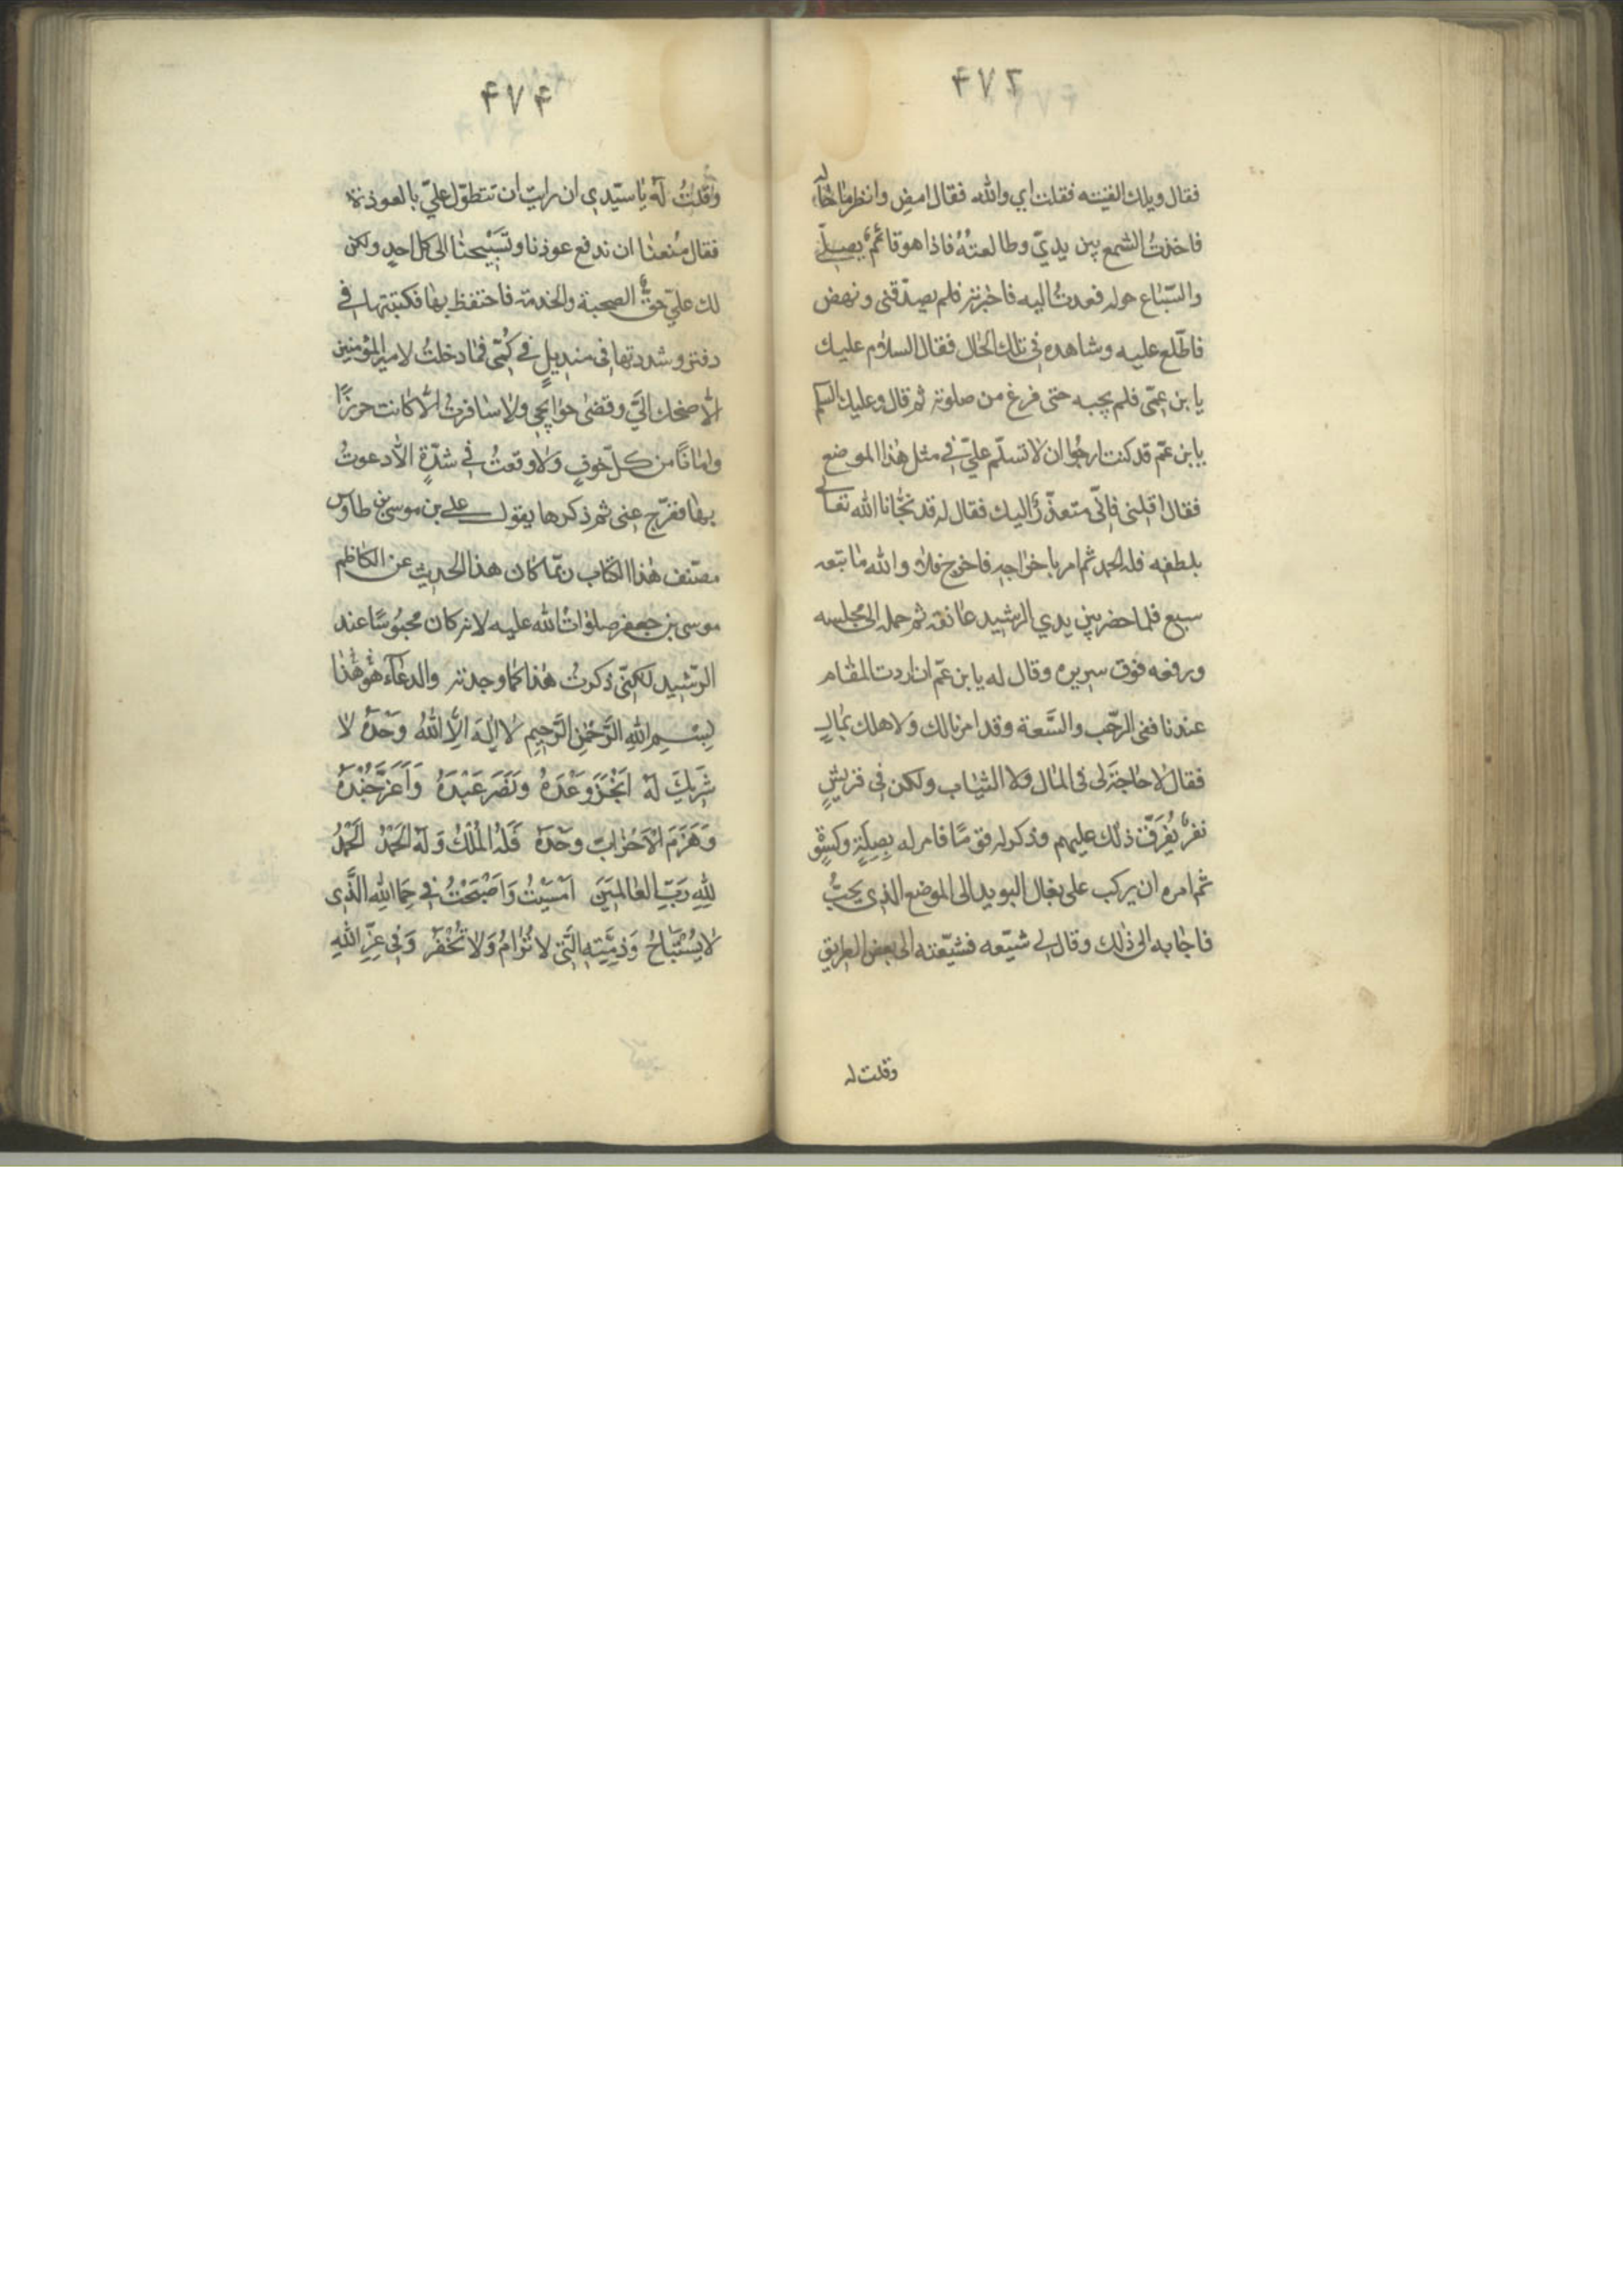 ۴۷۲
فقال ويلك القيته فقلت اي والله فقال امض وانظر ما حاله
فاخذتُ الشمع بين يديّ وطالعتهُ فاذا هو قائمٌ يصلّي
والسّباع حوله فعدتُ اليه فاخبرته فلم يصدّقنى ونهض
فاطّلع عليه وشاهده فى تلك الحال فقال السلام عليك
يا بن عمّى فلم يجبه حتى فرغ من صلوته ثم قال وعليك السلم
يا بن عمّ قد كنت ارجوا ان لا تسلّم علىّ فى مثل هذا الموضع
فقال اقلنى فانّى متعذّرٌ اليك فقال له قد نجّانا الله تعالى
بلطفه فله الحمد ثم امر باخراجه فاخرج فلا والله ما تبعه
سبع فلما حضر بين يدي الرشيد عانقه ثم حمله الى مجلسه
ورفعه فوق سريره وقال له يا بن عمّ ان اردت المقام
عندنا ففى الرحب والسَّعة وقد امرنا لك ولاهلك بمال
فقال لا حاجة لى فى المال ولا الثياب ولكن فى قريشٍ
نفرٌ يُفرَّق ذلك عليهم وذكر له قومًا فامر له بصِلَةٍ وكسوةٍ
ثم امره ان يركب على بغال البريد الى الموضع الذى يحبُّ
فاجابه الى ذلك وقال لى شيّعه فشيّعته الى بعض الطريق
وقلت له
۴۷۴
وقلتُ له يا سيّدي ان رايت ان تتطوّل علىّ بالعوذة
فقال مُنعنا ان ندفع عوذنا وتسبيحنا الى كل احدٍ ولكن
لك علىّ حقُّ الصحبة والخدمة فاحتفظ بها فكتبتها فى
دفتر وشددتها فى منديلٍ فى كُمّى فما دخلتُ لامير المؤمنين
الّا ضحك الىّ وقضى حوايجي ولا سافرتُ الّا كانت حرزًا
وامانًا من كلّ خوفٍ ولا وقعتُ فى شدّةٍ الّا دعوتُ
بها ففرّج عنى ثم ذكرها يقول على بن موسى بن طاوس
مصنّف هذا الكتاب ربّما كان هذا الحديث عن الكاظم
موسى بن جعفر صلوات الله عليه لانه كان محبوسًا عند
الرّشيد لكنّى ذكرتُ هذا كما وجدته والدعآء هُو هٰذا
بِسْمِ اللهِ الرَّحْمٰنِ الرَّحِيمِ لا اِلٰهَ اِلَّا اللهُ وَحْدَهُ لا
شَرِيكَ لَهُ اَنْجَزَ وَعْدَهُ وَنَصَرَ عَبْدَهُ وَاَعَزَّ جُنْدَهُ
وَهَزَمَ الْاَحْزابَ وَحْدَهُ فَلَهُ الْمُلْكُ وَلَهُ الْحَمْدُ الْحَمْدُ
لِلّٰهِ رَبِّ الْعالَمِينَ اَمْسَيْتُ وَاَصْبَحْتُ فى حِمَا اللهِ الَّذى
لا يُسْتَباحُ وَذِمَّتِهِ الَّتى لا تُرامُ وَلا تُخْفَرُ وَفى عِزِّ اللهِ